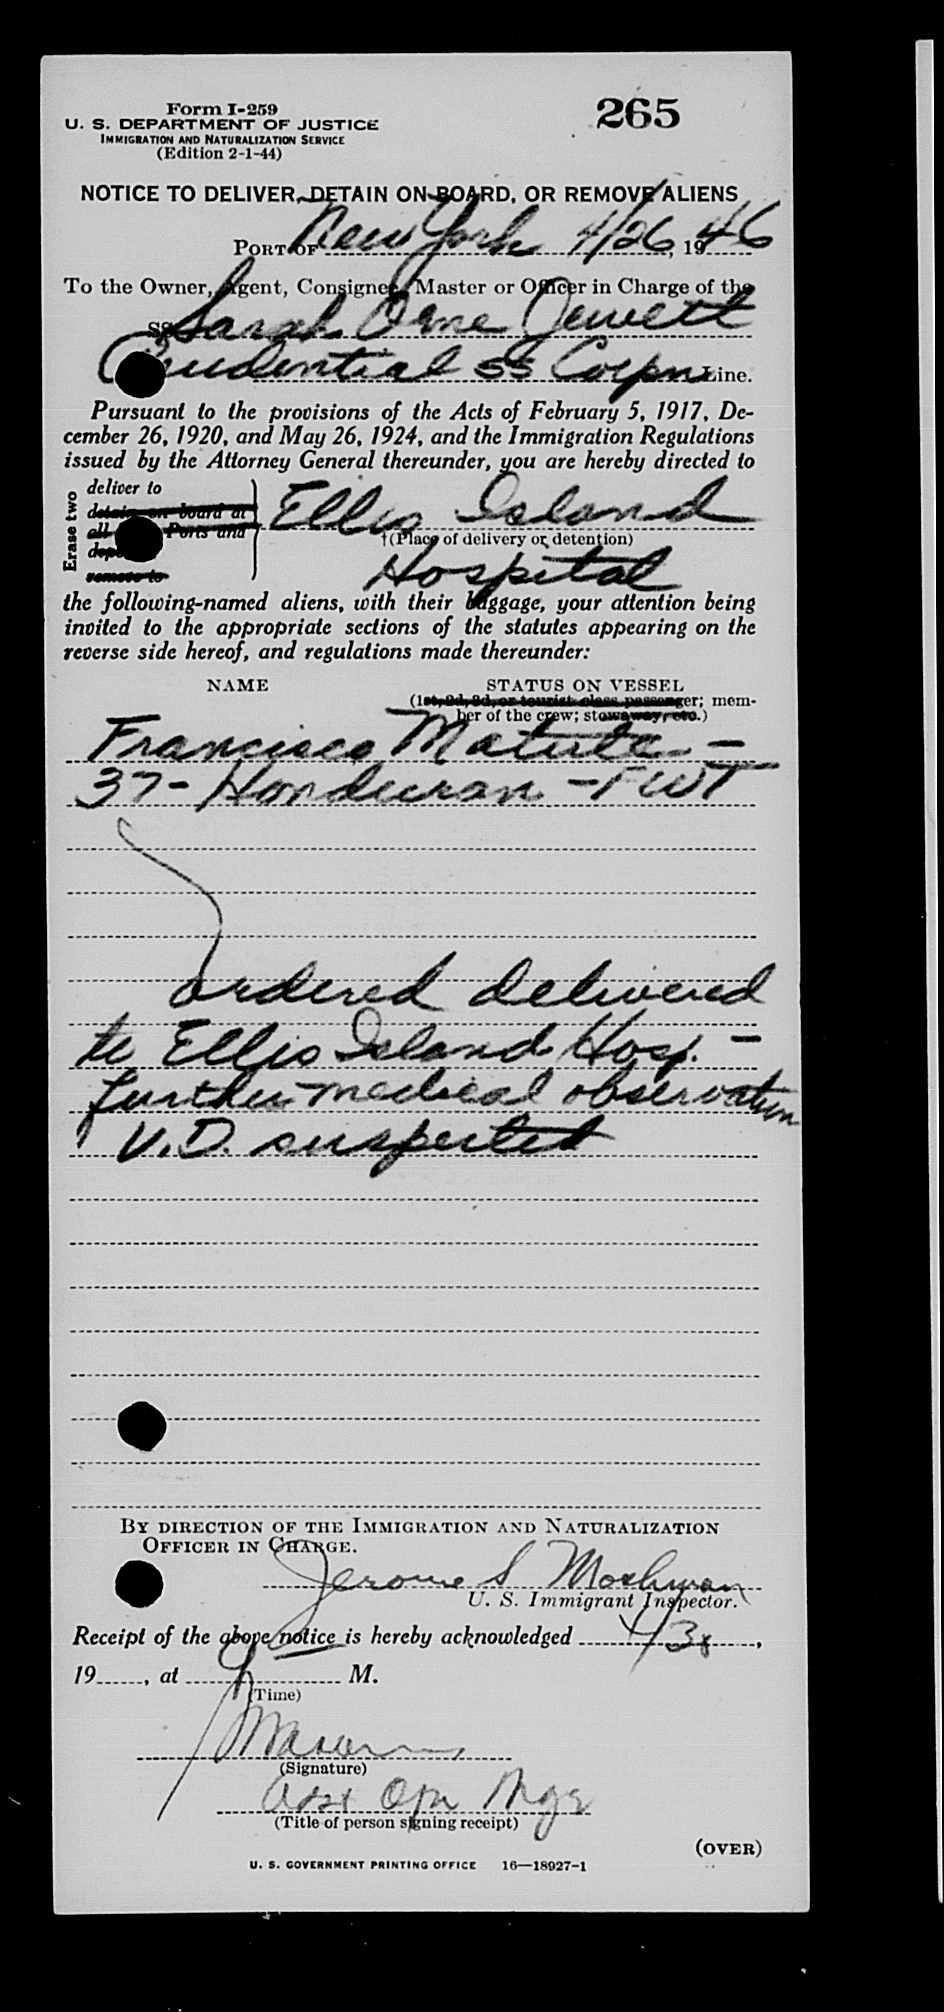 Form I-259
265
U. S. DEPARTMENT OF JUSTICE
IMMIGRATION AND NATURALIZATION SERVICE
(Edition 2-1-44)
NOTICE TO DELIVER, DETAIN ON BOARD, OR REMOVE ALIENS
PORT OF New York 4/26, 1946
To the Owner, Agent, Consignee, Master or Officer in Charge of the
SS Sarah Orne Jewett
Prudential SS Corpn Line.
Pursuant to the provisions of the Acts of February 5, 1917, De-
cember 26, 1920, and May 26, 1924, and the Immigration Regulations
issued by the Attorney General thereunder, you are hereby directed to
Erase two
deliver to
detain on board at
all Ports and
remove to
Ellis Island
†(Place of delivery or detention)
Hospital
the following-named aliens, with their baggage, your attention being
invited to the appropriate sections of the statutes appearing on the
reverse side hereof, and regulations made thereunder:
NAME STATUS ON VESSEL
(1st, 2d, 3d, or tourist class passenger; mem-
ber of the crew; stowaway, etc.)
Francisco Matute -
37 - Honduran - FWT
ordered delivered
to Ellis Island Hosp. -
further medical observation
V.D. suspected
BY DIRECTION OF THE IMMIGRATION AND NATURALIZATION
OFFICER IN CHARGE.
Jerome S
U. S. Immigrant Inspector.
Receipt of the above notice is hereby acknowledged 4/30,
19......, at M.
(Time)
(Signature)
Asst Opn Mgr
(Title of person signing receipt)
(OVER)
U. S. GOVERNMENT PRINTING OFFICE 16—18927-1